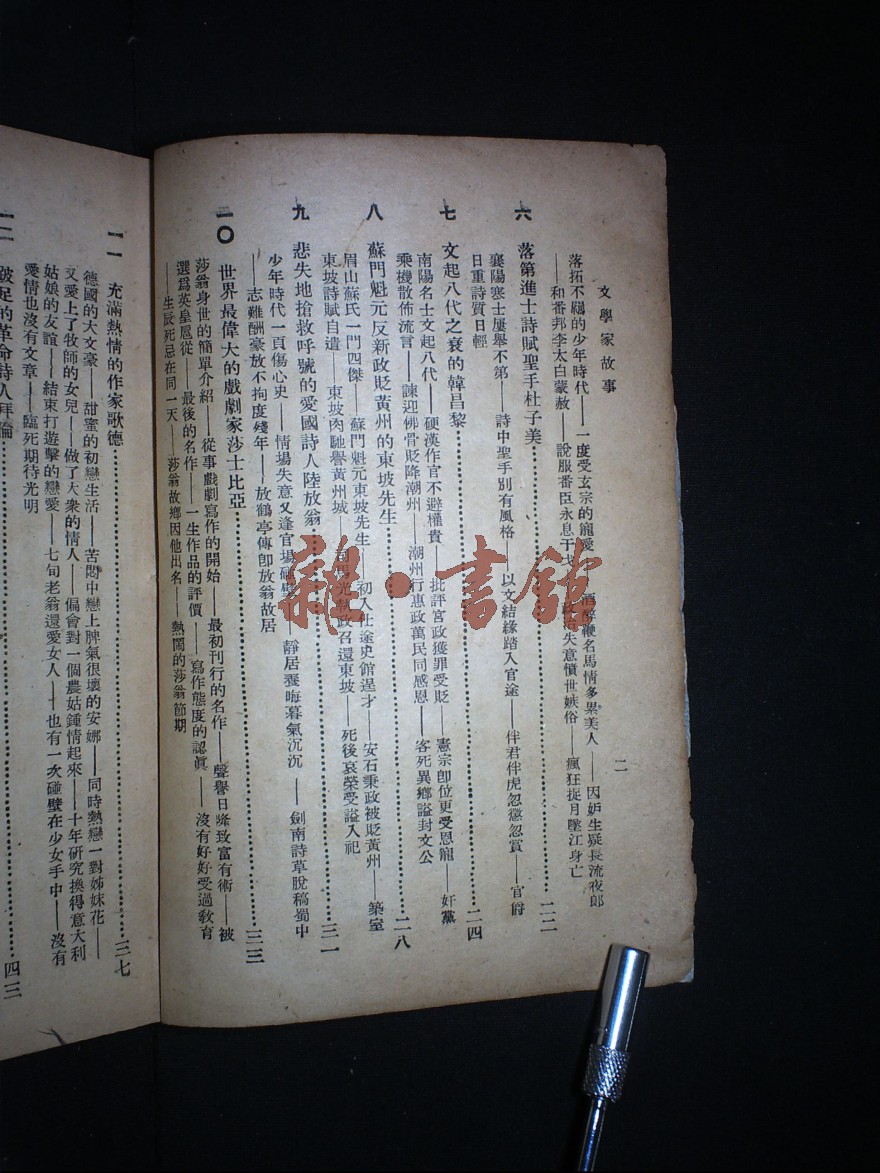 文學家故事
二
落拓不羈的少年時代——一度受玄宗的寵愛——酒醉鞭名馬情多累美人——因妒生疑長流夜郎
——和番邦李太白蒙赦——說服番臣永息干戈——政治失意憤世嫉俗——瘋狂捉月墜江身亡
六 落第進士詩賦聖手杜子美……二二
襄陽寒士屢舉不第——詩中聖手別有風格——以文結緣踏入官途——伴君伴虎忽懲忽賞——官爵
日重詩質日輕
七 文起八代之衰的韓昌黎……二四
南陽名士文起八代——硬漢作官不避權貴——批評宮政獲罪受貶——憲宗卽位更受恩寵——奸黨
乘機散佈流言——諫迎佛骨貶降潮州——潮州行惠政萬民同感恩——客死異鄉謚封文公
八 蘇門魁元反新政貶黃州的東坡先生……二八
眉山蘇氏一門四傑——蘇門魁元東坡先生——初入仕途史館呈才——安石秉政被貶黃州——築室
東坡詩賦自遣——東坡肉馳譽黃州城——司馬光執政召還東坡——死後哀榮受謚入祀
九 悲失地搶救呼號的愛國詩人陸放翁……三一
少年時代一頁傷心史——情場失意又逢官場碰壁——靜居養晦暮氣沉沉——劍南詩草脫稿蜀中
——志難酬豪放不拘度殘年——放鶴亭傳卽放翁故居
一〇 世界最偉大的戲劇家莎士比亞……三三
莎翁身世的簡單介紹——從事戲劇寫作的開始——最初刊行的名作——聲譽日隆致富有術——被
選爲英皇扈從——最後的名作——一生作品的評價——寫作態度的認眞——沒有好好受過敎育
——生辰死忌在同一天——莎翁故鄉因他出名——熱鬧的莎翁節期
一一 充滿熱情的作家歌德……三七
德國的大文豪——甜蜜的初戀生活——苦悶中戀上脾氣很壞的安娜——同時熱戀一對姊妹花——
又愛上了牧師的女兒——做了大衆的情人——偏會對一個農姑鍾情起來——十年研究換得意大利
姑娘的友誼——結束打遊擊的戀愛——七旬老翁還愛女人——也有一次碰壁在少女手中——沒有
愛情也沒有文章——臨死期待光明
一二 跛足的革命詩人拜倫……四三
雜·書館